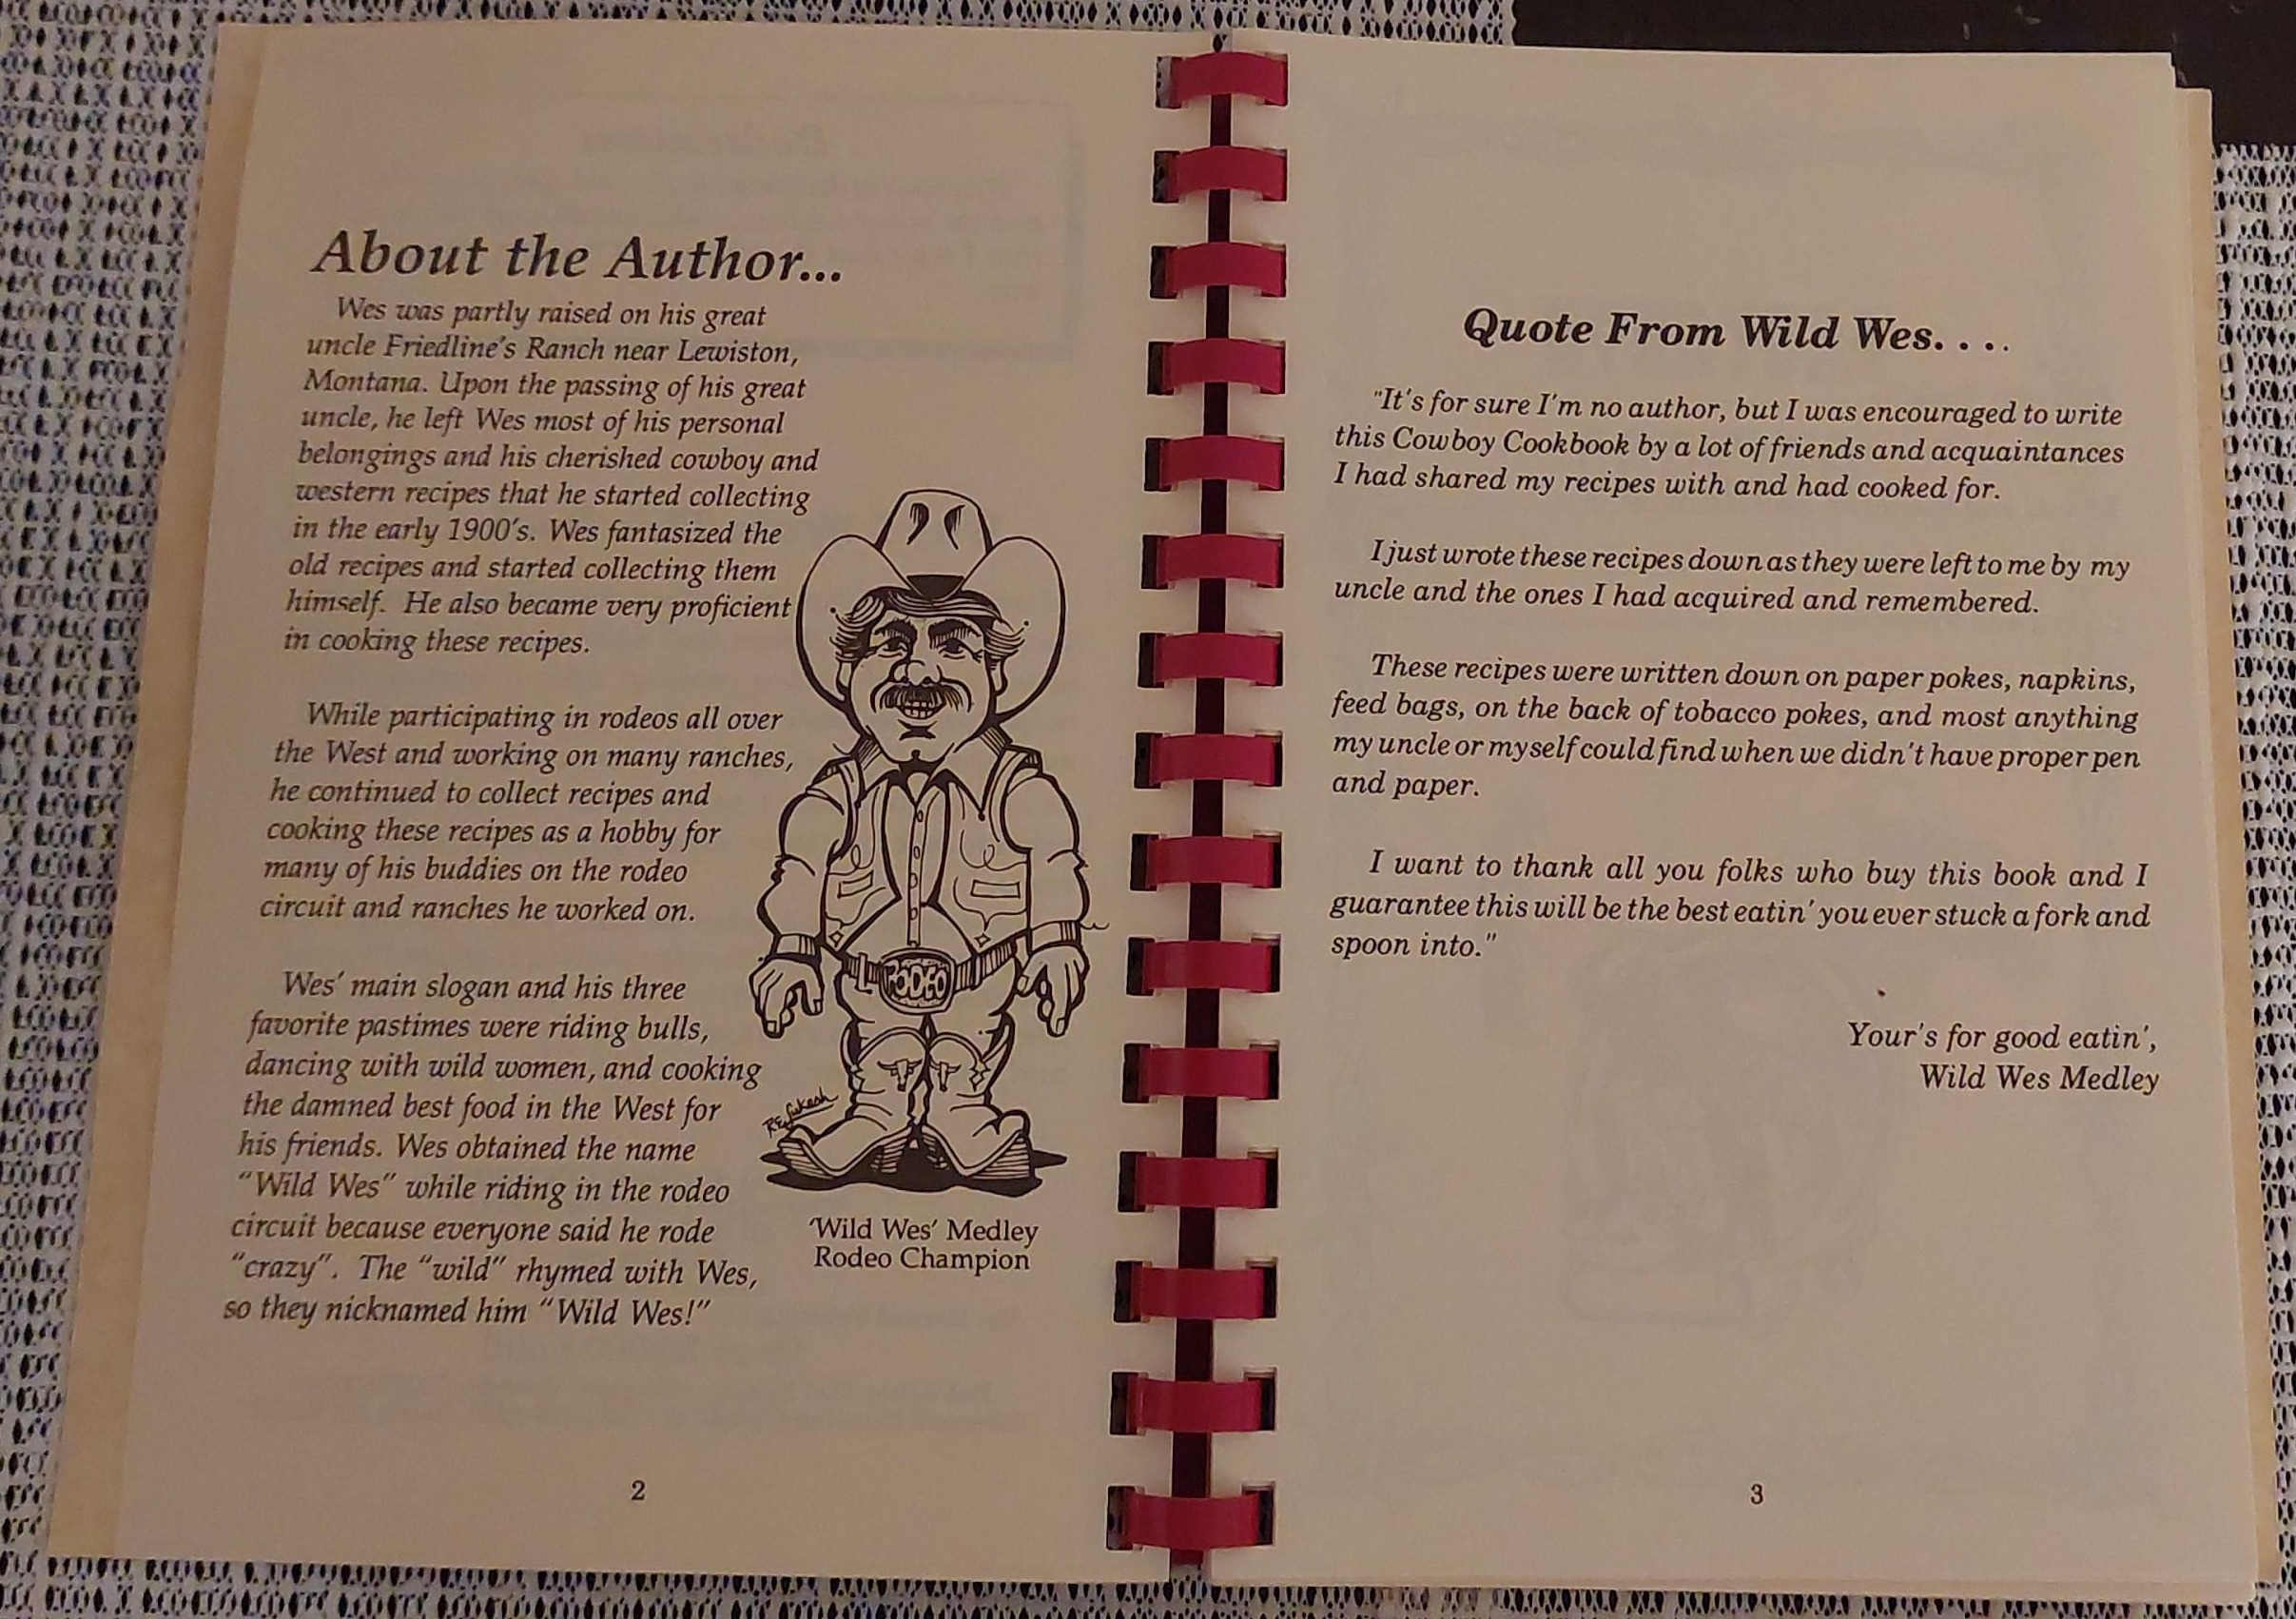 About the Author...
Wes was partly raised on his great
uncle Friedline's Ranch near Lewiston,
Montana. Upon the passing of his great
uncle, he left Wes most of his personal
belongings and his cherished cowboy and
western recipes that he started collecting
in the early 1900's. Wes fantasized the
old recipes and started collecting them
himself. He also became very proficient
in cooking these recipes.
While participating in rodeos all over
the West and working on many ranches,
he continued to collect recipes and
cooking these recipes as a hobby for
many of his buddies on the rodeo
circuit and ranches he worked on.
Wes' main slogan and his three
favorite pastimes were riding bulls,
dancing with wild women, and cooking
the damned best food in the West for
his friends. Wes obtained the name
“Wild Wes” while riding in the rodeo
circuit because everyone said he rode
“crazy”. The “wild” rhymed with Wes,
so they nicknamed him “Wild Wes!”
RODEO
'Wild Wes' Medley
Rodeo Champion
2
Quote From Wild Wes. . . .
"It's for sure I'm no author, but I was encouraged to write
this Cowboy Cookbook by a lot of friends and acquaintances
I had shared my recipes with and had cooked for.
I just wrote these recipes down as they were left to me by my
uncle and the ones I had acquired and remembered.
These recipes were written down on paper pokes, napkins,
feed bags, on the back of tobacco pokes, and most anything
my uncle or myself could find when we didn't have proper pen
and paper.
I want to thank all you folks who buy this book and I
guarantee this will be the best eatin' you ever stuck a fork and
spoon into."
Your's for good eatin',
Wild Wes Medley
3